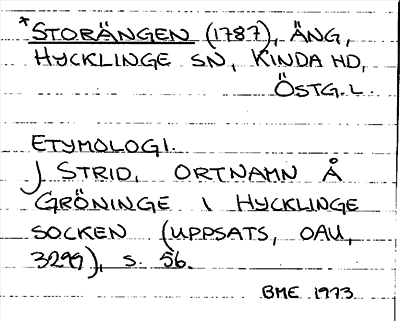 *STORÄNGEN (1787), ÄNG,
HYCKLINGE SN, KINDA HD,
ÖSTG. L.
ETYMOLOGI.
J STRID, ORTNAMN Å
GRÖNINGE I HYCKLINGE
SOCKEN (UPPSATS, OAU,
3299), S. 56.
BME 1973